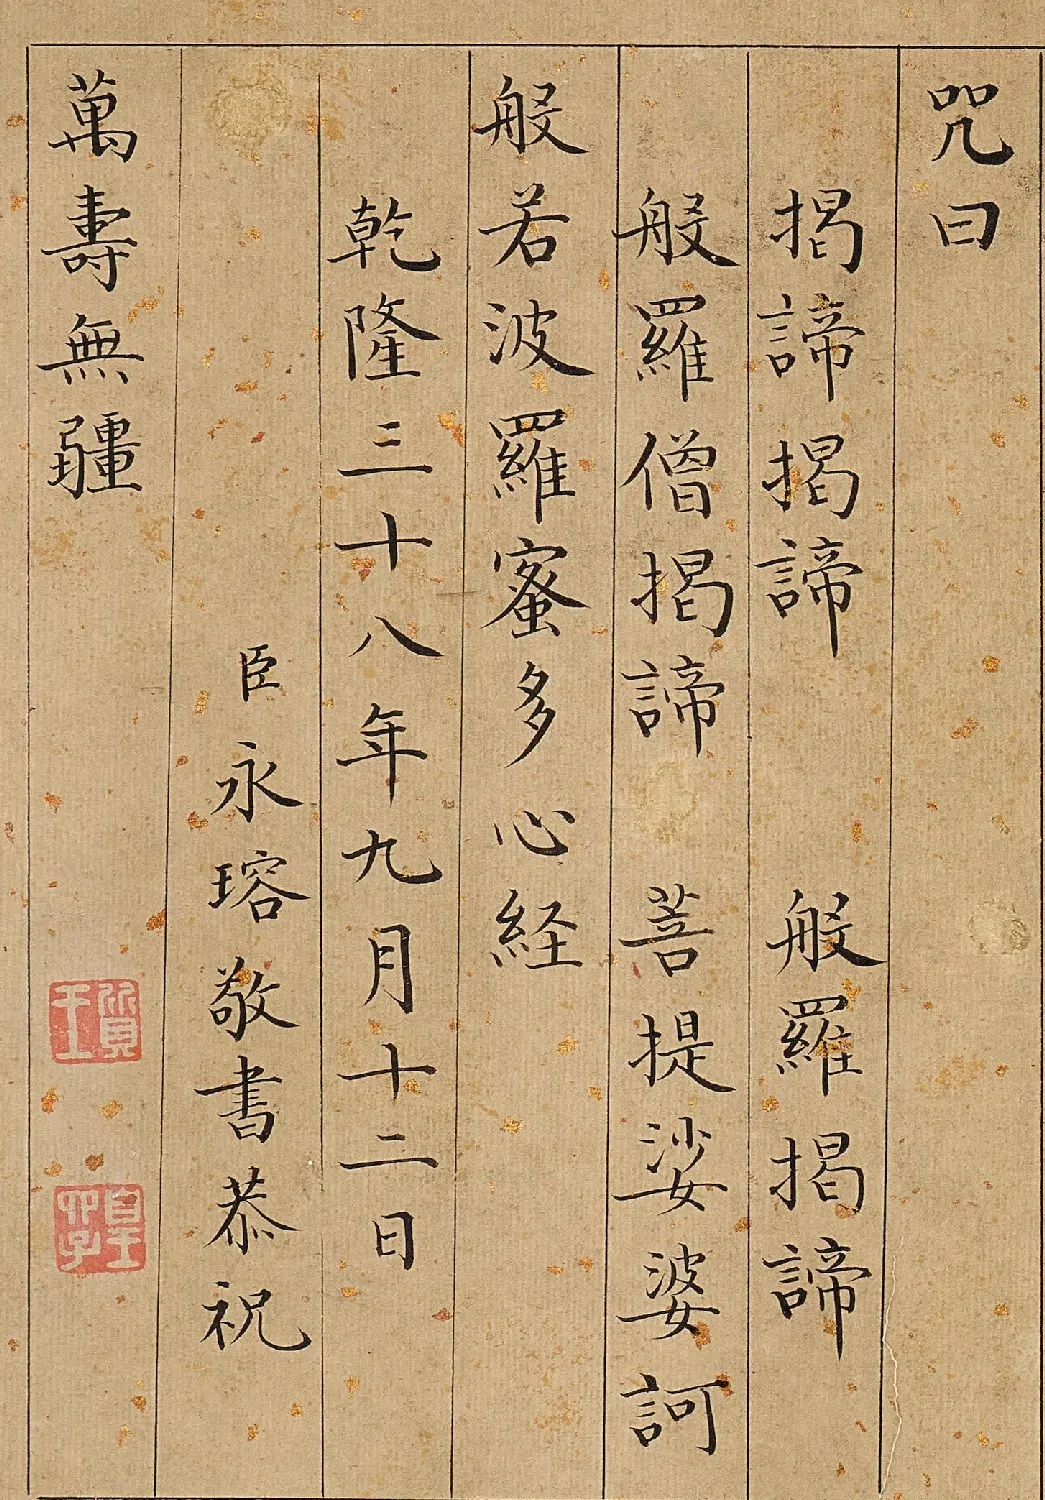 咒曰
揭諦揭諦　般羅揭諦
般羅僧揭諦　菩提娑婆訶
般若波羅蜜多心経
乾隆三十八年九月十二日
臣永瑢敬書恭祝
萬壽無疆
質
王
皇
六
子